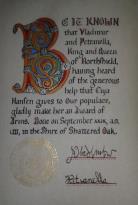 BE IT KNOWN
that Vladimir
and Petranella,
King and Queen
of Northshield,
having heard
of the generous
help that Eiya
Hansen gives to Our populace,
gladly make her an Award of
Arms. Done on September xxix, a.s.
in the Shire of Shattered Oak.
Vladimir
Petranella